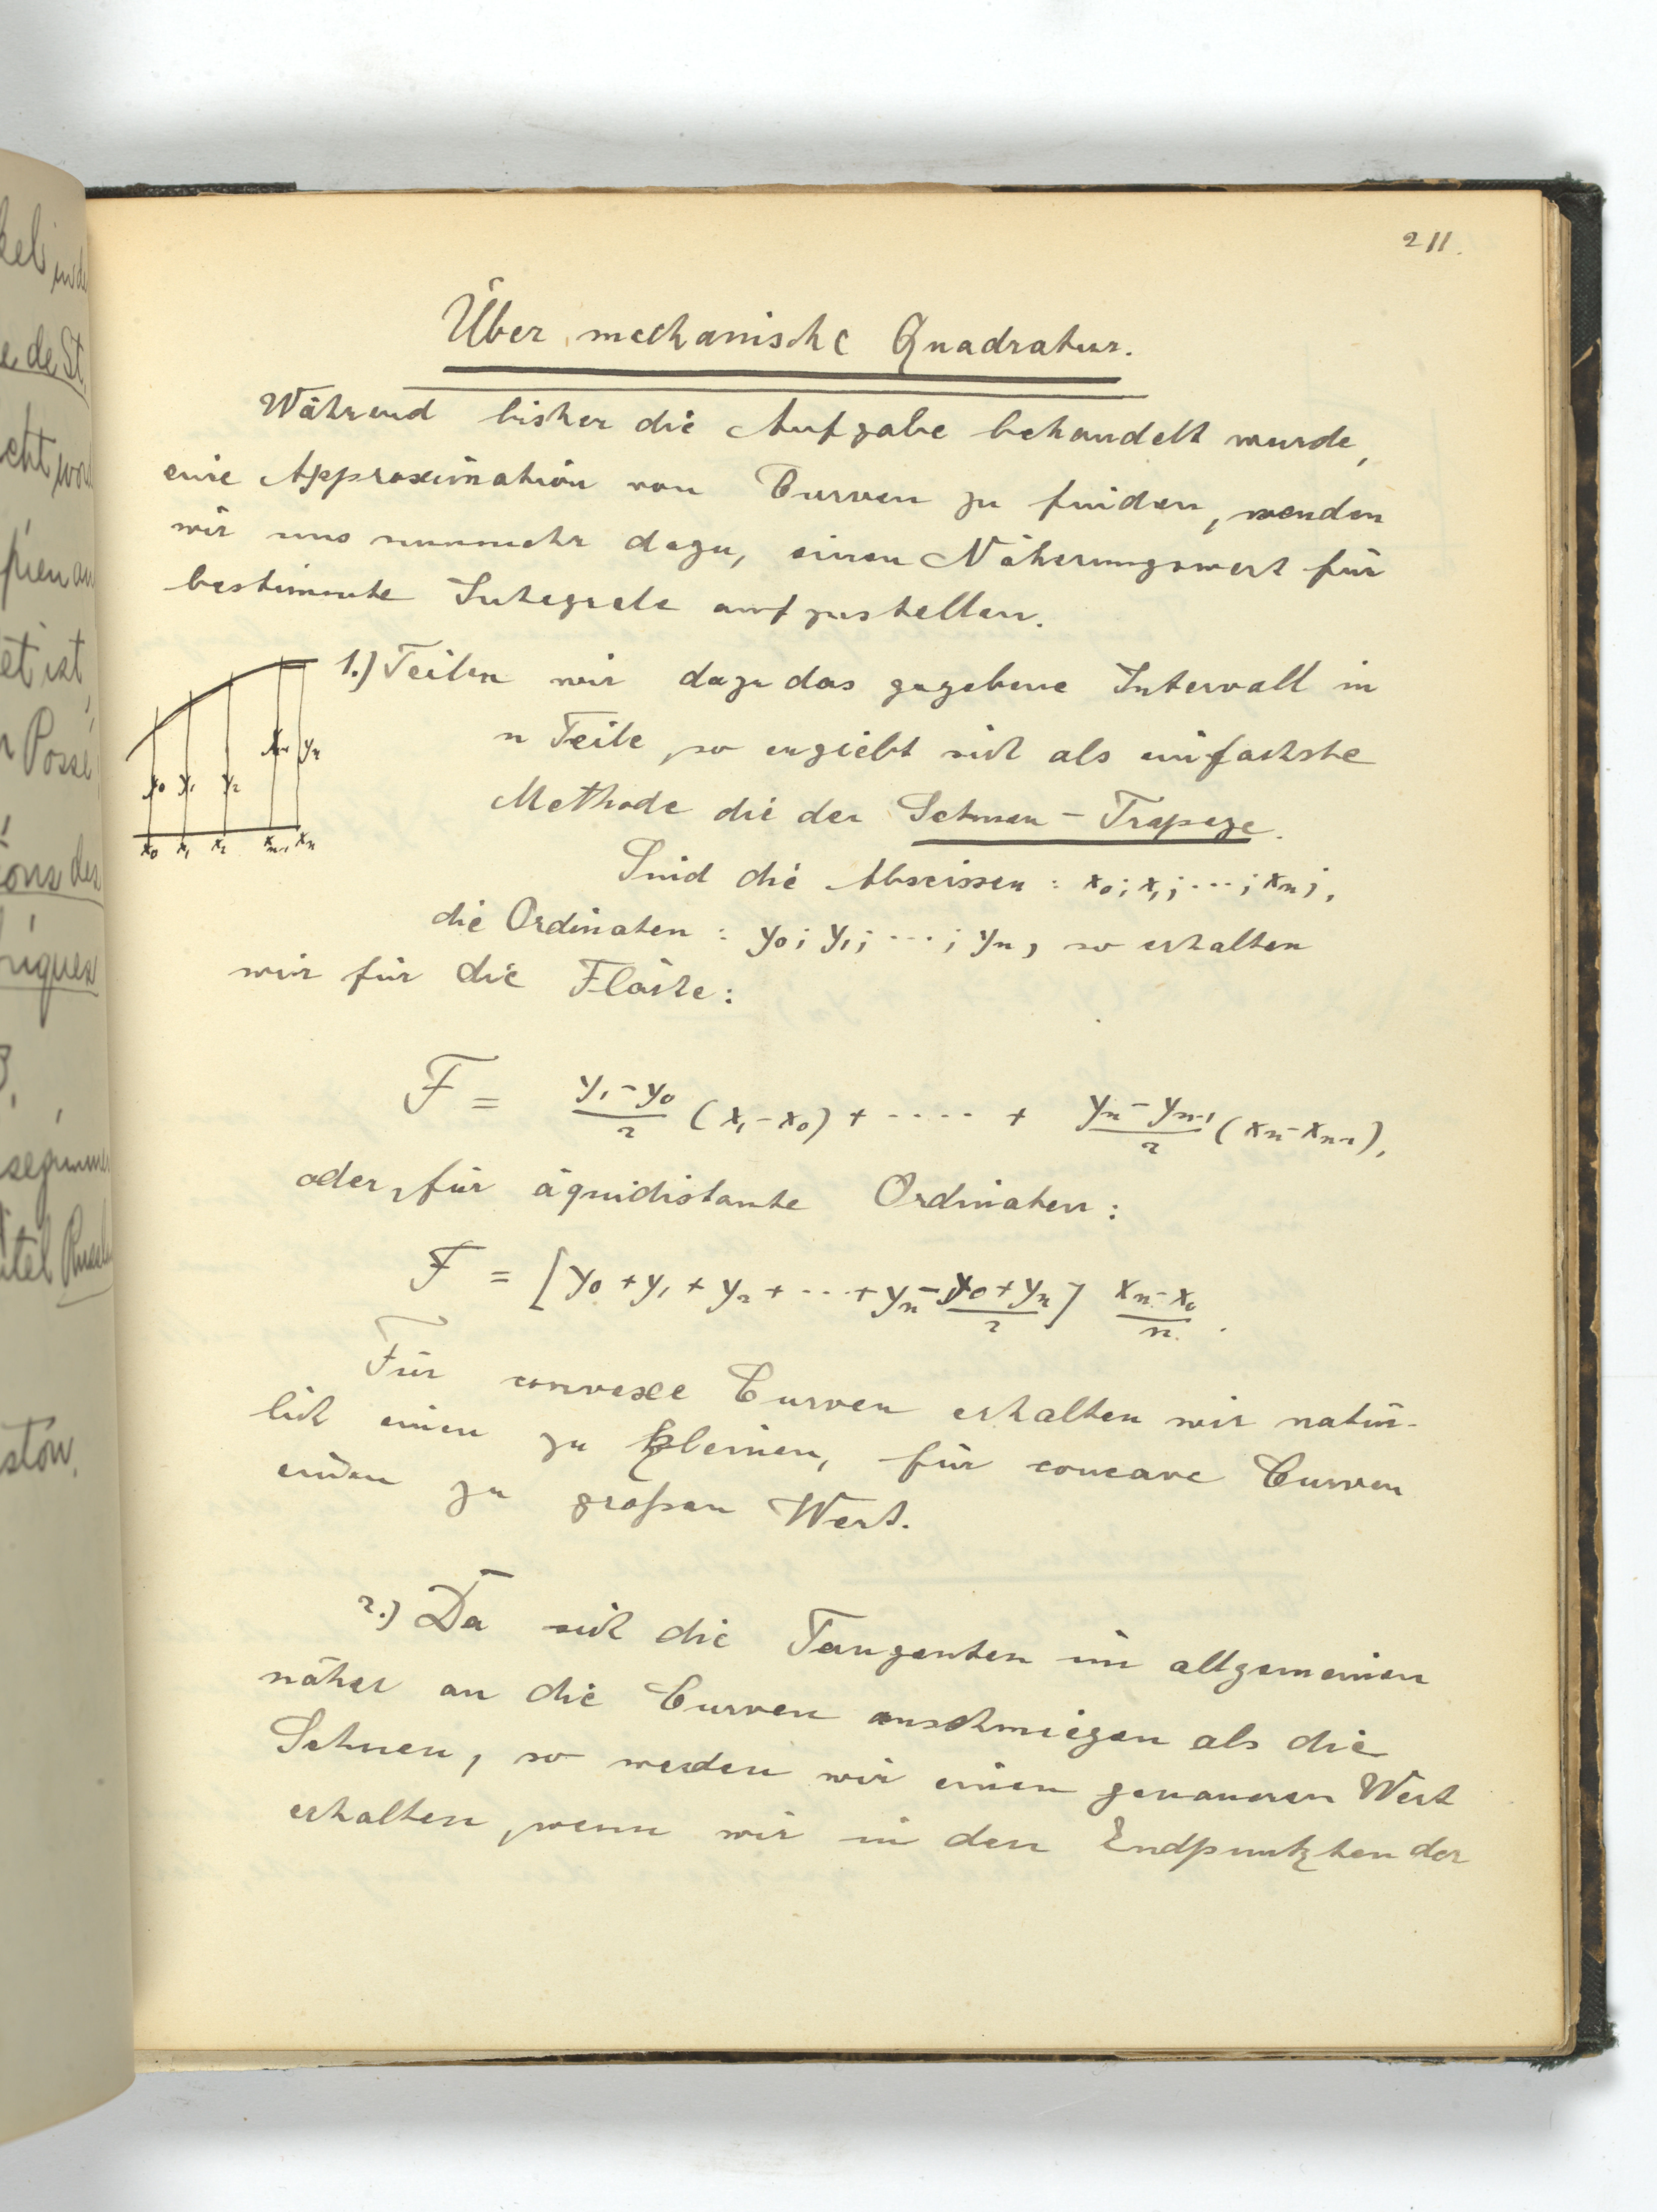 211.
Über mechanische Quadratur.
Während bisher die Aufgabe behandelt wurde,
eine Approximation von Curven zu finden, wenden
wir uns nunmehr dazu, einen Näherungswert für
bestimmte Integrale aufzustellen.
1.) Teilen wir dazu das gegebene Intervall in
n Teile, so ergiebt sich als einfachste
Methode die der Sehnen-Trapeze.
y0 y1 y2 yn-1 yn
x0 x1 x2 xn-1 xn
Sind die Abscissen: x0; x1; ...; xn;,
die Ordinaten: y0; y1; ...; yn, so erhalten
wir für die Fläche:
F = (y1 - y0)/2 (x1 - x0) + ..... + (yn - yn-1)/2 (xn - xn-1),
oder, für äquidistante Ordinaten:
F = [y0 + y1 + y2 + ... + yn - (y0 + yn)/2] (xn - x0)/n.
Für convexe Curven erhalten wir natür-
lich einen zu kleinen, für concave Curven
einen zu großen Wert.
2.) Da sich die Tangenten im allgemeinen
näher an die Curven anschmiegen als die
Sehnen, so werden wir einen genaueren Wert
erhalten, wenn wir in den Endpunkten der
kel in de
e de St.
cht
pien an
et ist,
Possé
ions des
riques
stow.